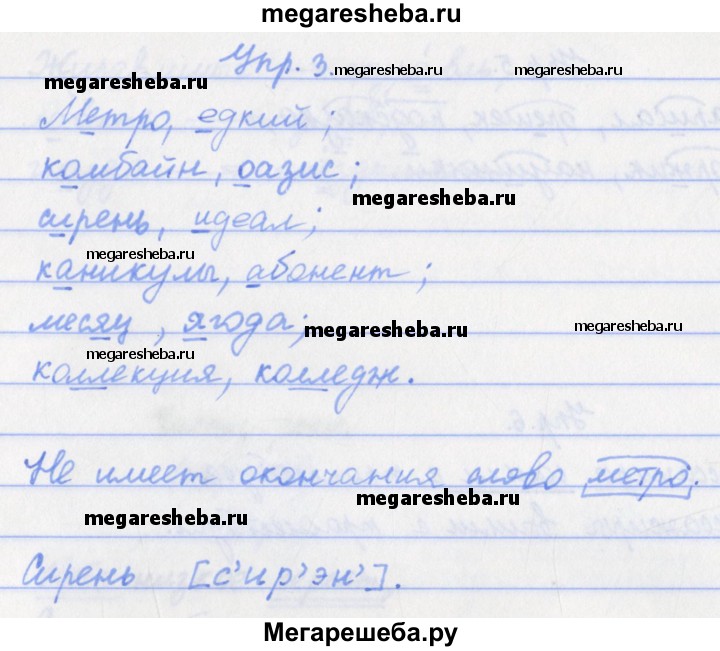 megaresheba.ru
Упр. 3. megaresheba.ru
Метро, едкий; megaresheba.ru
комбайн, оазис;
megaresheba.ru
сирень, идеал;
megaresheba.ru
каникулы, абонент;
месяц, ягода; megaresheba.ru megaresheba.ru
megaresheba.ru
коллекция, колледж.
Не имеет окончания слово метро.
megaresheba.ru
megaresheba.ru
Сирень [с'ир'эн'].
megaresheba.ru
Мегарешеба.ру